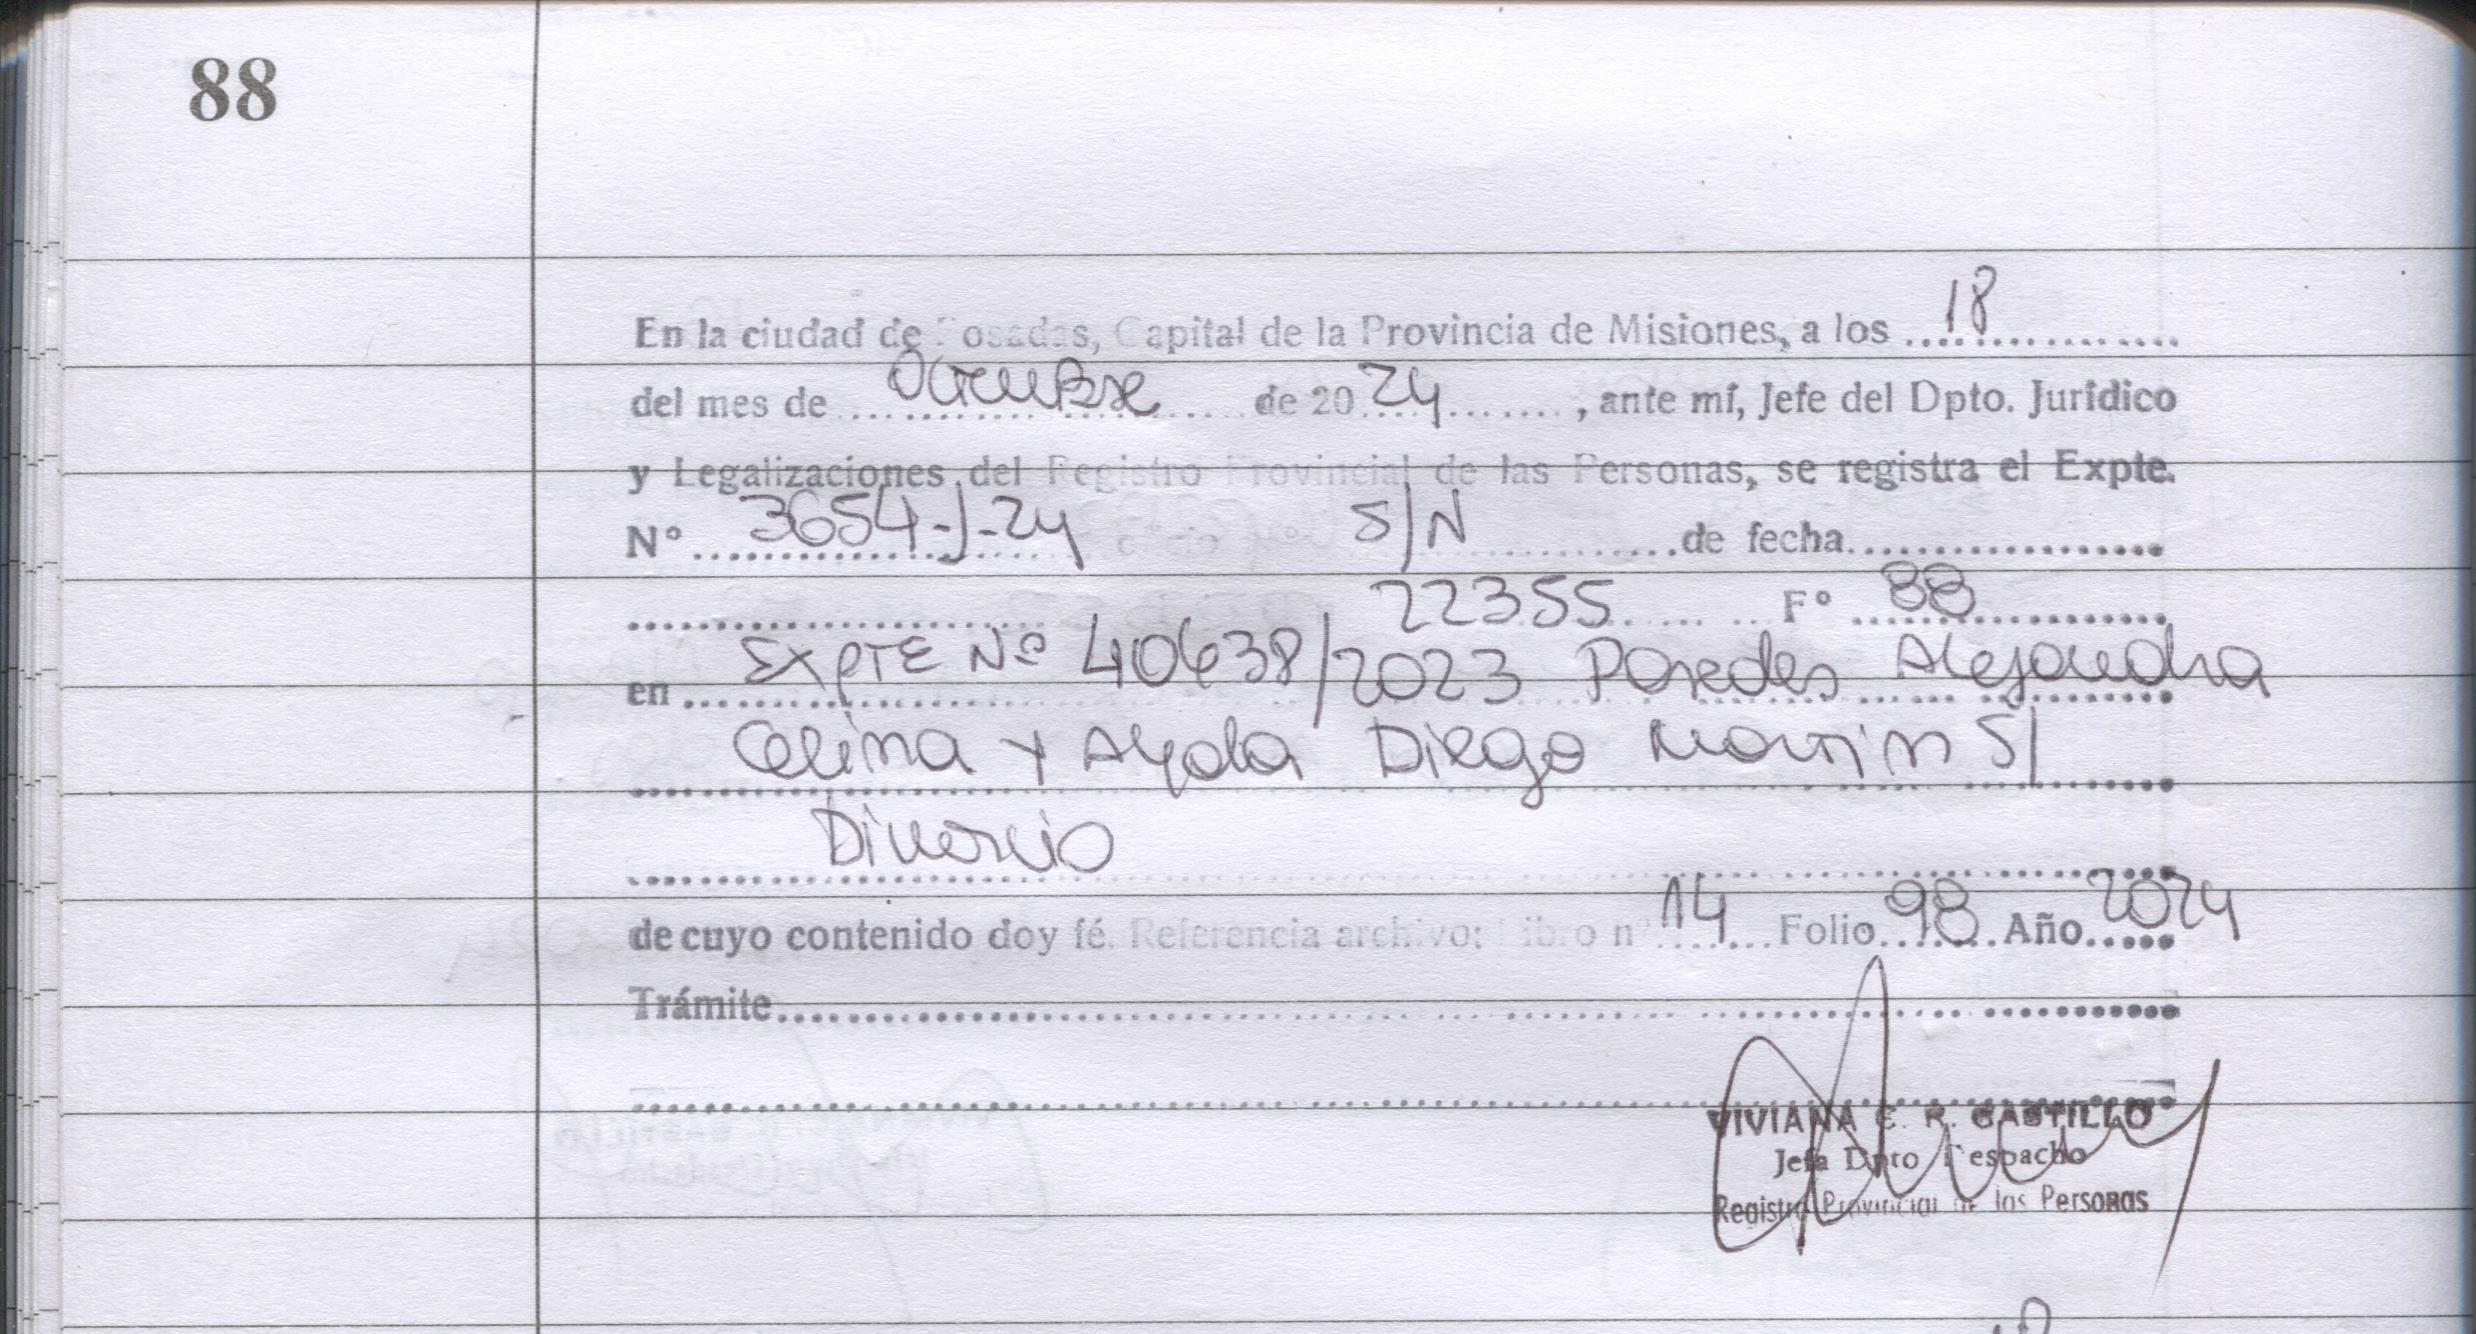 88
En la ciudad de Posadas, Capital de la Provincia de Misiones, a los 18
del mes de Octubre de 2024, ante mí, Jefe del Dpto. Jurídico
y Legalizaciones del Registro Provincial de las Personas, se registra el Expte.
Nº 3654-J-24 S/N de fecha
22355 Fº 88
en Expte Nº 40638/2023 Paredes Alejandra
Celina y Ayala Diego Martin S/
Divorcio
de cuyo contenido doy fé. Referencia archivo: Libro nº 14 Folio 98 Año 2024
Trámite
VIVIANA C. R. CASTILLO
Jefa Dpto Despacho
Registro Provincial de las Personas